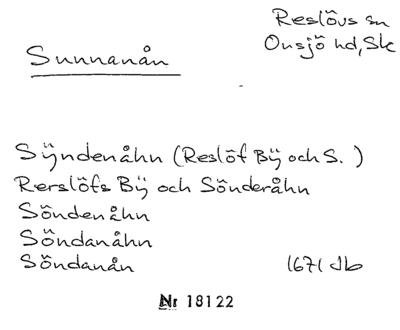 Reslövs sn
Onsjö hd, Sk
Sunnanån
Sÿndenåhn (Reslöf Bÿ och S. )
Rerslöfs Bÿ och Sönderåhn
Söndenåhn
Söndanåhn
Söndanån 1671 Jb
Nr 18122